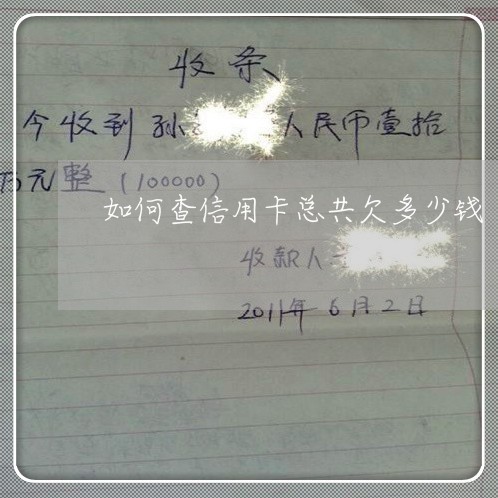 收条
今收到孙 人民币壹拾
万元整（100000）
如何查信用卡总共欠多少钱
收款人
2011年6月2日